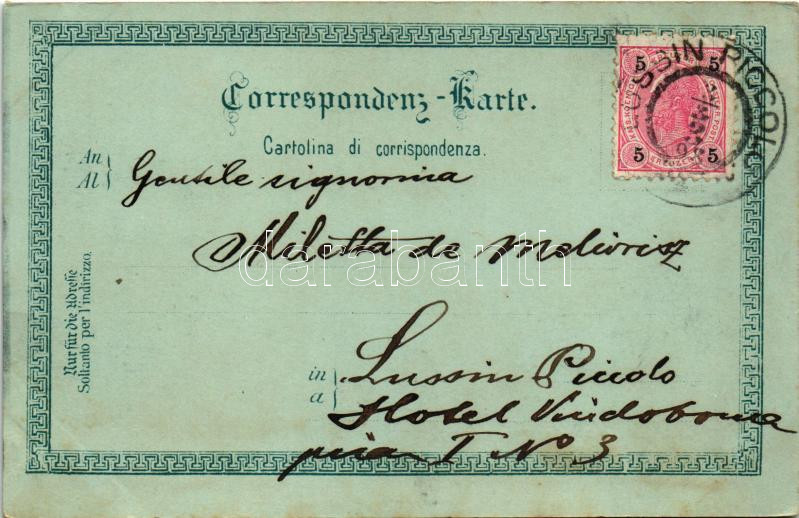 Correspondenz-Karte.
Cartolina di corrispondenza.
An
Al
Gentile signorina
Miletta de Meliorisz
in
a
Lussin Piccolo
Hotel Vindobona
I No 3
Nur für die Adresse
Soltanto per l'indirizzo.
5 5
5 5
KREUZER
LUSSIN PICCOLO
darabanth